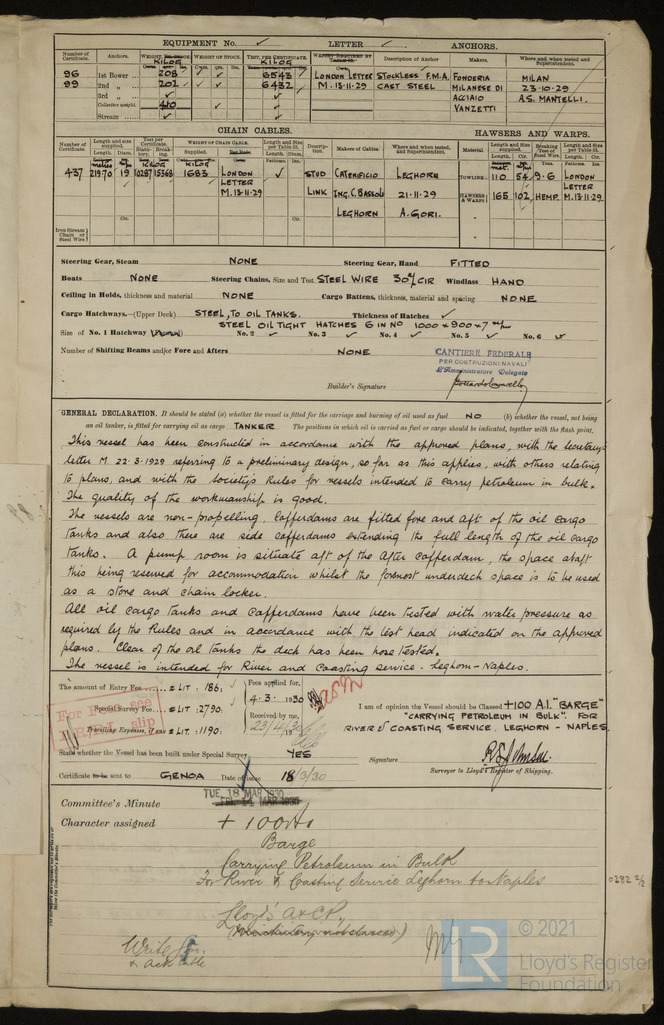 EQUIPMENT No. ✓ LETTER ✓ ANCHORS.
Number of Certificate. Anchors. WEIGHT, WEIGHT OF STOCK. TEST, PER CERTIFICATE. WEIGHT REQUIRED BY Description of Anchor Makers. Where and when tested and Superintendent.
KILOG KILOG
96 1st Bower 208 6543 LONDON LETTER STOCKLESS F.M.A. FONDERIA MILAN
99 2nd „ 202 6432 M. 13-11-29 CAST STEEL MILANESE DI 23-10-29
3rd „ ACCIAIO A.S. MANTELLI.
Collective weight. 410 VANZETTI
Stream
CHAIN CABLES. HAWSERS AND WARPS.
Number of Certificate. Length and size supplied. Test per Certificate. WEIGHT OF CHAIN CABLE. Length and Size per Table 31. Description. Makers of Cables. Where and when tested, and Superintendent. Material. Length and Size supplied. Breaking Test of Steel Wire. Length and Size per Table 31.
Length. Diam. Statutory. Breaking. Supplied. Length. Diam. Length. Cir. Length. Cir.
KILOG
437 219.70 19 10287 15368 1683 LONDON ✓ STUD CATENIFICIO LEGHORN TOWLINE 110 54 9.6 LONDON
LETTER LETTER
M. 13-11-29 LINK ING. C. BASSOLI 21-11-29 HAWSERS & WARPS 165 102 HEMP M. 13-11-29
LEGHORN A. GORI.
Iron Stream Chain or Steel Wire
Steering Gear, Steam NONE Steering Gear, Hand FITTED
Boats NONE Steering Chains, Size and Test STEEL WIRE 30 CIR Windlass HAND
Ceiling in Holds, thickness and material NONE Cargo Battens, thickness, material and spacing NONE
Cargo Hatchways.—(Upper Deck) STEEL, TO OIL TANKS. Thickness of Hatches ✓
STEEL OIL TIGHT HATCHES 6 IN NO 1000 × 900 × 7
Size of No. 1 Hatchway No. 2 No. 3 No. 4 No. 5 No. 6
Number of Shifting Beams and/or Fore and Afters NONE
CANTIERE FEDERALE
PER COSTRUZIONI NAVALI
L'Amministratore Delegato
Builder's Signature
GENERAL DECLARATION. It should be stated (a) whether the vessel is fitted for the carriage and burning of oil used as fuel NO (b) whether the vessel, not being
an oil tanker, is fitted for carrying oil as cargo TANKER The positions in which oil is carried as fuel or cargo should be indicated, together with the flash point.
This vessel has been constructed in accordance with the approved plans, with the Secretary's
letter M. 22-3-1929 referring to a preliminary design, so far as this applies, with others relating
to plans, and with the Society's Rules for vessels intended to carry petroleum in bulk.
The quality of the workmanship is good.
The vessels are non-propelling. Cofferdams are fitted fore and aft of the oil cargo
tanks and also there are side cofferdams extending the full length of the oil cargo
tanks. A pump room is situate aft of the after cofferdam, the space abaft
this being reserved for accommodation whilst the foremost underdeck space is to be used
as a store and chain locker.
All oil cargo tanks and cofferdams have been tested with water pressure as
required by the Rules and in accordance with the test head indicated on the approved
plans. Clear of the oil tanks the deck has been hose tested.
The vessel is intended for River and Coasting service. Leghorn-Naples.
The amount of Entry Fee LIT: 186: Fees applied for, 4.3.1930
Special Survey Fee LIT: 2790: Received by me,
Travelling Expenses, if any LIT: 1190:
For Fees see slip
I am of opinion the Vessel should be Classed +100 A.I. "BARGE"
"CARRYING PETROLEUM IN BULK" FOR
RIVER & COASTING SERVICE. LEGHORN - NAPLES.
State whether the Vessel has been built under Special Survey YES
Signature
Surveyor to Lloyd's Register of Shipping.
Certificate to be sent to GENOA Date of issue 18/3/30
TUE 18 MAR 1930
FRI. 14 MAR 1930
Committee's Minute
Character assigned + 100A1
Barge
Carrying Petroleum in Bulk
For River & Coasting Service Leghorn to Naples
Lloyd's A & CP.
0282 2/2
© 2021
LR
Lloyd's Register
Foundation